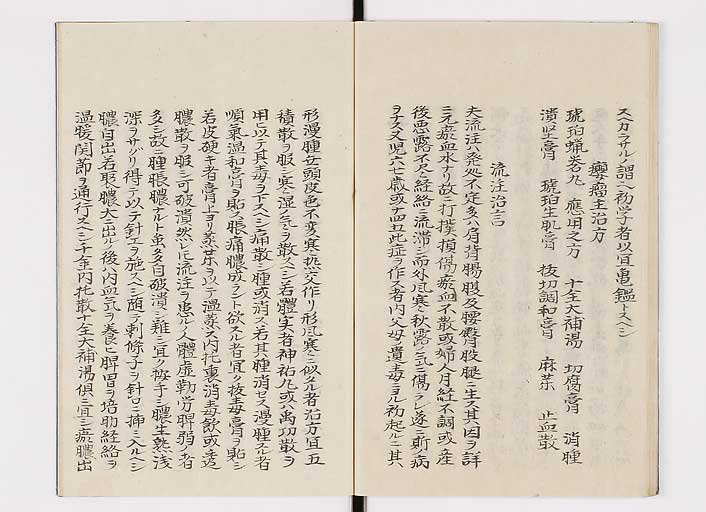 スカラサルノ謂ヘ初学者以宜亀鑑トスヘシ
癭瘤主治方
琥珀蝋巻丸 應用之方 十全大補湯 切腐膏 消腫
潰堅膏 琥珀生肌膏 抜切調和膏 麻藥 止血散
流注治言
夫流注ハ発処不定多ハ肩背腸腹及腰臀股腿ニ生ス其因ヲ詳
ニ元瘀血水ナリ故ニ打撲損傷瘀血不散或婦人月経不調或産
後悪露不尽経絡ニ流滞シ而外風寒ニ秋露ノ気ニ傷ラレ遂ニ斯ノ病
ヲナス又児六七歳或十四五此症ヲ作ス者内父母ノ遺毒ニヨル初起ルニ其
形漫腫女頭皮色不変寒熱交作リ形風寒ニ似タル者治方宜五
積散ヲ服シ寒ニ湿ノ気ヲ散スヘシ若體実者神祐丸或ハ禹功散ヲ
用ヒ以テ其毒ヲ下スヘシ痛散シ腫或消ス若其腫消セス漫腫スル者
順気温和膏ヲ貼ス脹痛膿成ラント欲スル者宜ク抜毒膏ヲ貼シ
若皮硬キ者膏上ヨリ蒸藥ヲ以テ温蒸シ内托裏消毒飲或ハ透
膿散ヲ服シ可破潰然レトモ流注ヲ患ル人體虚勤労脾弱ノ者
多シ故ニ腫脹膿アルト虽多自破潰シ難シ宜ク按手シ膿生熟浅
深ヲサグリ得テ以テ針ヲ施スヘシ頭ニ剌條子ヲ針口ニ挿ミ入ルヘシ
膿自出若聚膿大ニ出ルノ後ハ内血気ヲ養ヒ脾胃ヲ培助経絡ヲ
温暖関節ヲ通行スヘシ千金内托散十全大補湯俱ニ宜シ瘀膿出